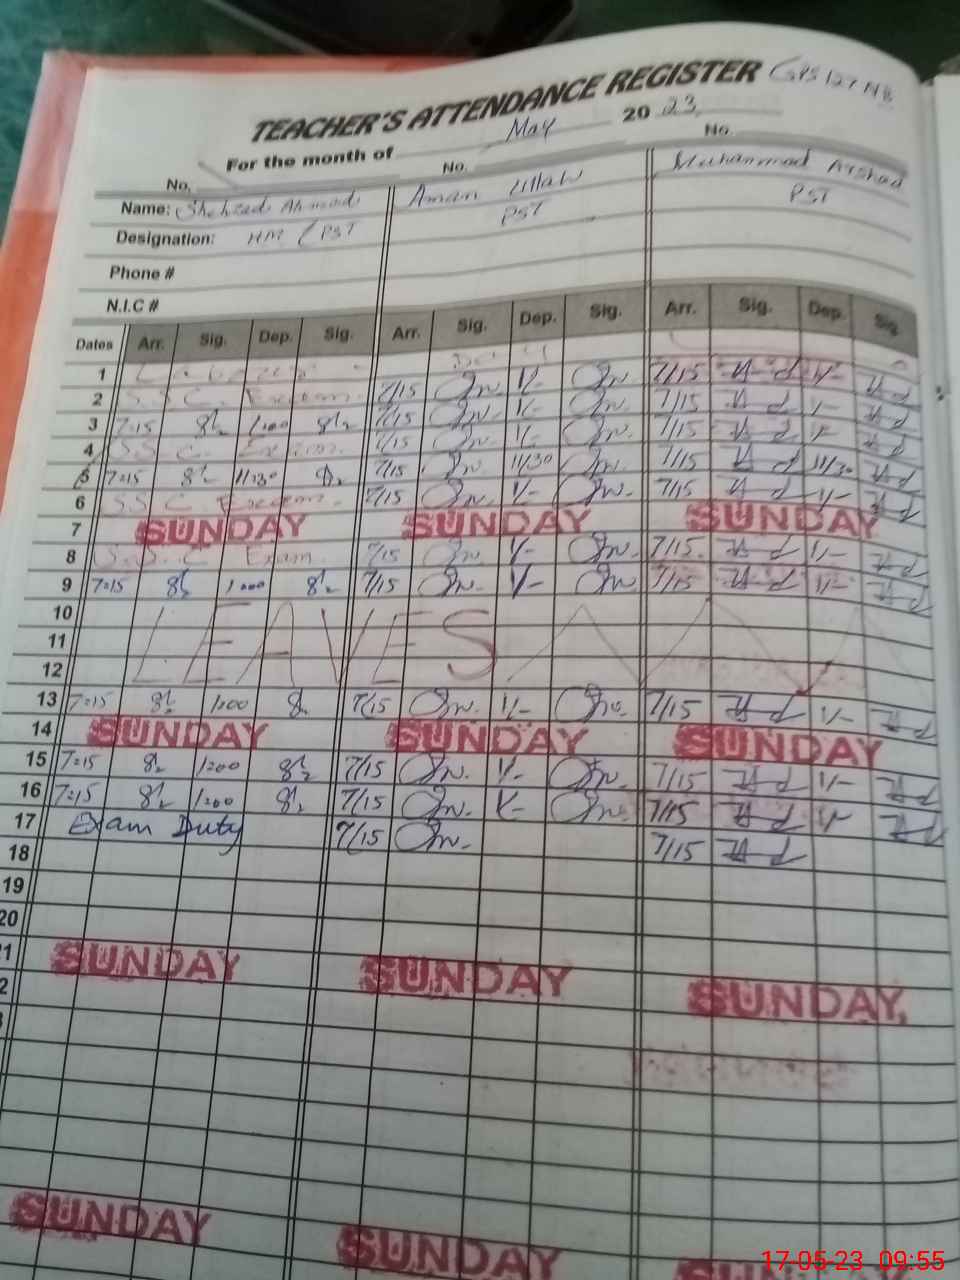 TEACHER'S ATTENDANCE REGISTER GPS 127 NB
For the month of May 20 23
No. No. No.
Name: Shehzad Ahmad Aman Ullah Muhammad Arshad
Designation: HM / PST PST PST
Phone #
N.I.C #
Dates Arr. Sig. Dep. Sig. Arr. Sig. Dep. Sig. Arr. Sig. Dep. Sig.
1 Labour Day
2 S.S.C. Exam 7/15 1/- 7/15 1/-
3 7=15 1:00 7/15 1/- 7/15 1/-
4 S.S.C. Exam 7/15 1/- 7/15 1/-
5 7=15 11:30 7/15 11/30 7/15 11/30
6 S.S.C Exam 7/15 1/- 7/15 1/-
7 SUNDAY SUNDAY SUNDAY
8 S.S.C Exam 7/15 1/- 7/15 1/-
9 7=15 1:00 7/15 1/- 7/15 1/-
10
11 LEAVES
12
13 7=15 1:00 7/15 1/- 7/15 1/-
14 SUNDAY SUNDAY SUNDAY
15 7=15 1:00 7/15 1/- 7/15 1/-
16 7=15 1:00 7/15 1/- 7/15 1/-
17 Exam Duty 7/15 7/15
18
19
20
21 SUNDAY SUNDAY SUNDAY
2
SUNDAY SUNDAY SUNDAY
17-05-23 09:55